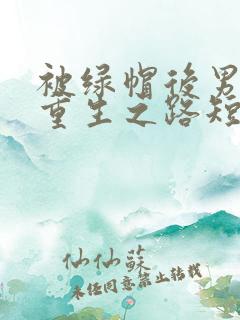 被绿帽后男
重生之路短
仙仙苏
未经同意禁止转载